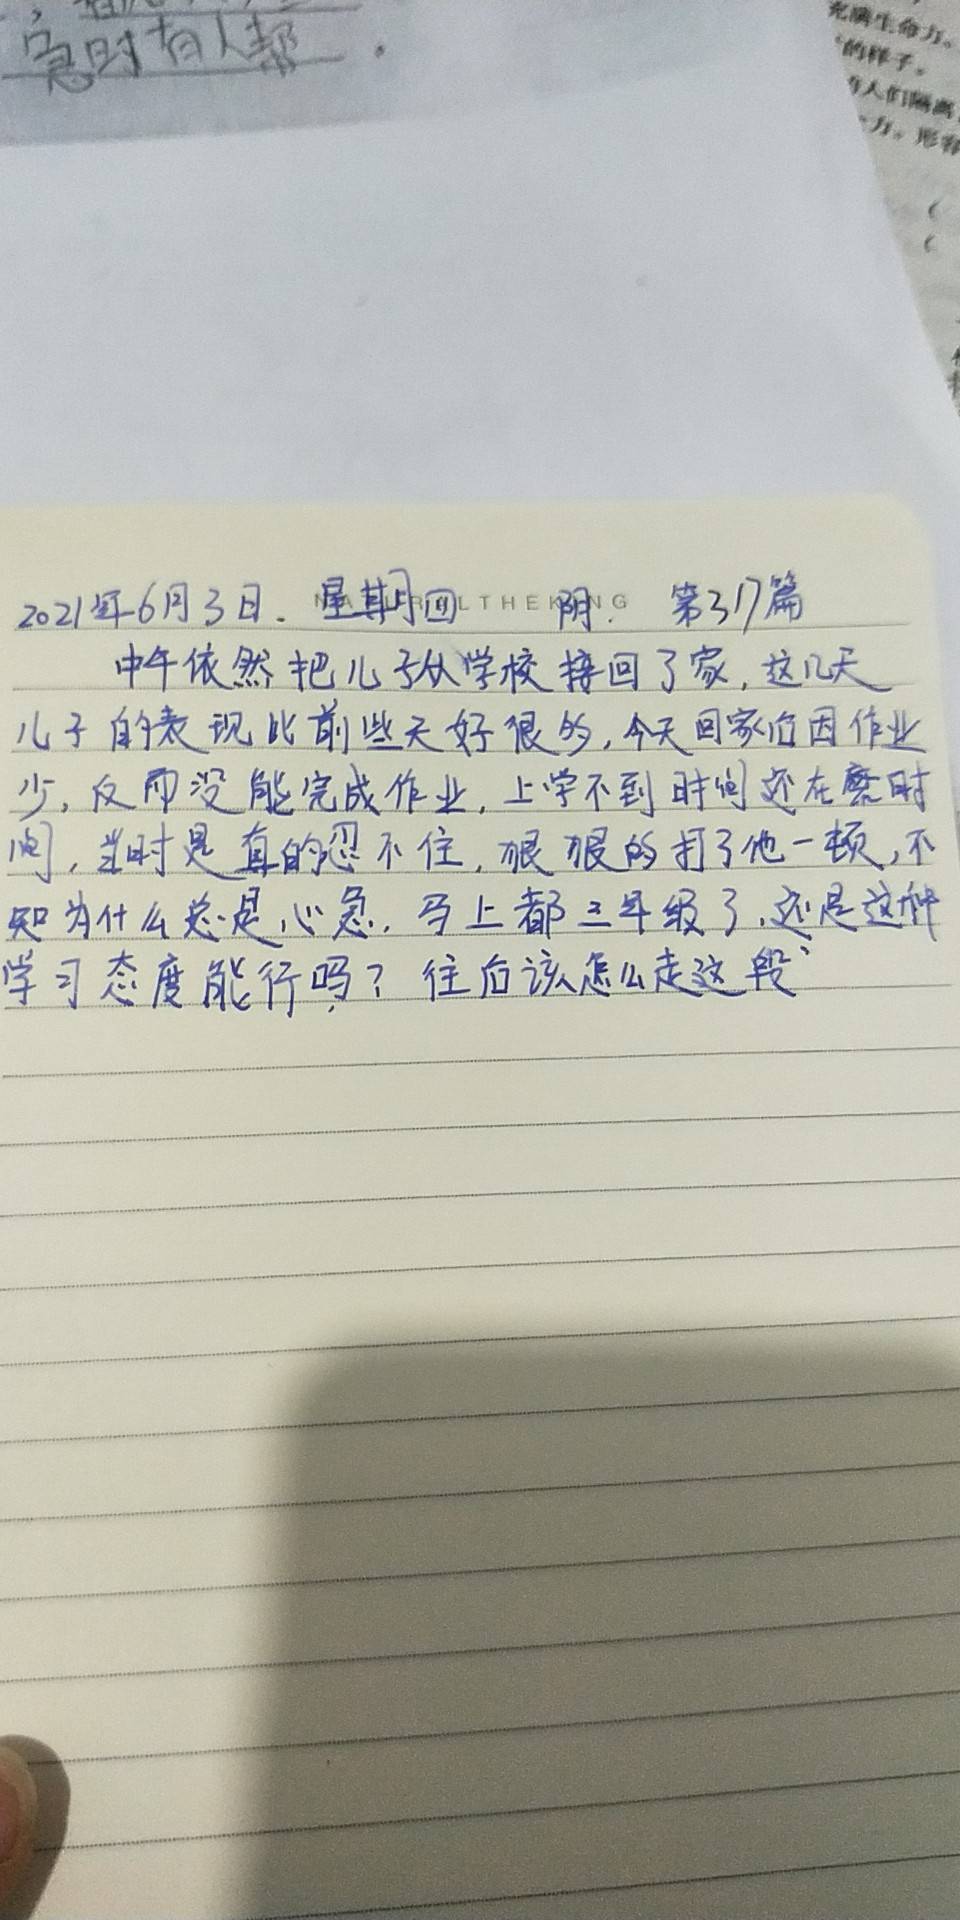 急时有人帮。
充满生命力。
的样子。
人们隔离
力。形容
2021年6月3日. 星期四 阴. 第317篇
中午依然把儿子从学校接回了家,这几天
儿子的表现比前些天好很多,今天回家后因作业
少,反而没能完成作业,上学不到时间还在磨时
间,当时是真的忍不住,狠狠的打了他一顿,不
知为什么总是心急,马上都三年级了,还是这种
学习态度能行吗?往后该怎么走这段